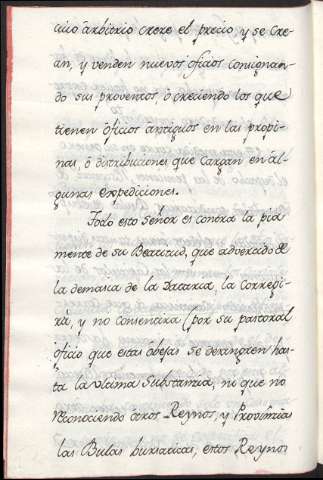 cuio arbitrio crece el precio, y se cre-
an, y venden nuevos oficios consignan-
do sus proventos, ò creciendo los que
tienen òficios antiguos en las propi-
nas, ò distribuciones que cargan en àl-
gunas expediciones.
Todo esto señor es contra la pia
mente de su Beatitud, que advertido de
la demasia de la Dataria, la corregi-
rà, y no consentirà (por su pastoral
òficio que estas òbejas se desangren has-
ta la ultima substancia, ni que no
reconociendo òtros Reynos, y Provincias
las Bulas bursaticas, estos Reynos